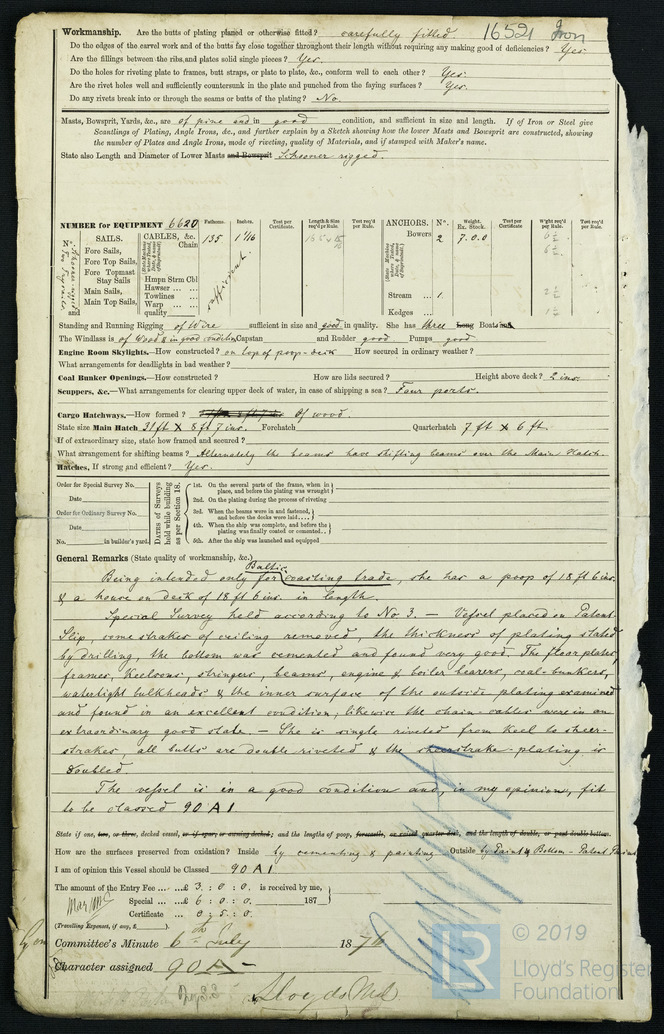 Workmanship. Are the butts of plating planed or otherwise fitted? carefully fitted. 16521 Iron
Do the edges of the carvel work and of the butts fay close together throughout their length without requiring any making good of deficiencies? Yes.
Are the fillings between the ribs and plates solid single pieces? Yes.
Do the holes for riveting plate to frames, butt straps, or plate to plate, &c., conform well to each other? Yes.
Are the rivet holes well and sufficiently countersunk in the plate and punched from the faying surfaces? Yes.
Do any rivets break into or through the seams or butts of the plating? No.
Masts, Bowsprit, Yards, &c., are of pine and in good condition, and sufficient in size and length. If of Iron or Steel give
Scantlings of Plating, Angle Irons, &c., and further explain by a Sketch showing how the lower Masts and Bowsprit are constructed, showing
the number of Plates and Angle Irons, mode of riveting, quality of Materials, and if stamped with Maker's name.
State also Length and Diameter of Lower Masts and Bowsprit Schooner rigged.
NUMBER for EQUIPMENT 6620 Fathoms. Inches. Test per Certificate. Length & Size req'd per Rule. Test req'd per Rule. ANCHORS. No. Weight. Ex. Stock. Test per Certificate W'ght req'd per Rule. Test req'd per Rule.
No. SAILS. CABLES, &c. Chain 135 1 1/16 Bowers 2 7.0.0
Fore Sails,
Fore Top Sails,
Fore Topmast Stay Sails Hmpn Strm Cbl
Hawser
Main Sails, Towlines sufficient. Stream 1.
Main Top Sails, Warp
and quality Kedges
Standing and Running Rigging of Wire sufficient in size and good in quality. She has three Long Boats
The Windlass is of Wood & in good condition Capstan and Rudder good. Pumps good
Engine Room Skylights.—How constructed? on top of poop-deck How secured in ordinary weather?
What arrangements for deadlights in bad weather?
Coal Bunker Openings.—How constructed? How are lids secured? Height above deck? 2 ins.
Scuppers, &c.—What arrangements for clearing upper deck of water, in case of shipping a sea? Four ports.
Cargo Hatchways.—How formed? Of wood.
State size Main Hatch 31 ft x 8 ft 7 ins. Forehatch Quarterhatch 7 ft x 6 ft.
If of extraordinary size, state how framed and secured?
What arrangement for shifting beams? Alternately the beams have shifting beams over the Main Hatch.
Hatches, If strong and efficient? Yes.
Order for Special Survey No.
Date
Order for Ordinary Survey No.
Date
No. in builder's yard.
DATES of Surveys held while building as per Section 18.
1st. On the several parts of the frame, when in place, and before the plating was wrought
2nd. On the plating during the process of riveting
3rd. When the beams were in and fastened, and before the decks were laid....
4th. When the ship was complete, and before the plating was finally coated or cemented...
5th. After the ship was launched and equipped
General Remarks (State quality of workmanship, &c.)
Baltic
Being intended only for coasting trade, she has a poop of 18 ft 6 ins.
& a house on deck of 18 ft 6 ins. in length.
Special Survey held according to No 3. — Vessel placed on Patent
Slip, some strakes of ceiling removed, the thickness of plating stated
by drilling, the bottom was cemented and found very good. The floor plates,
frames, keelsons, stringers, beams, engine & boiler bearers, coal-bunkers,
watertight bulkheads & the inner surface of the outside plating examined
and found in an excellent condition, likewise the chain-cables were in an
extraordinary good state. — She is single riveted from keel to sheer-
strakes, all butts are double riveted & the sheerstrake-plating is
doubled.
The vessel is in a good condition and, in my opinion, fit
to be classed 90 A1
State if one, two, or three, decked vessel, or if spar, or awning decked; and the lengths of poop, forecastle, or raised quarter deck, and the length of double, or part double bottom.
How are the surfaces preserved from oxidation? Inside by cementing & painting Outside by Paint & Bottom - Patent
I am of opinion this Vessel should be Classed 90 A1
The amount of the Entry Fee ... £ 3 : 0 : 0. is received by me,
Special ... £ 6 : 0 : 0. 187
Certificate ... 0 : 5 : 0.
(Travelling Expenses, if any, £ ).
Committee's Minute 6th July 1876
Character assigned 90 A
Lloyds
© 2019
LR
Lloyd's Register
Foundation